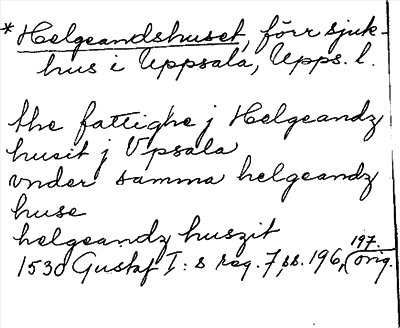 *Helgeandshuset, förr sjuk-
hus i Uppsala, Upps. l.
the fattighe j Helgeandz
husit j Vpsala
vnder samma helgeandz
huse
helgeandz huszit
1530 Gustaf I: s reg. 7, ss. 196, 197 (orig.